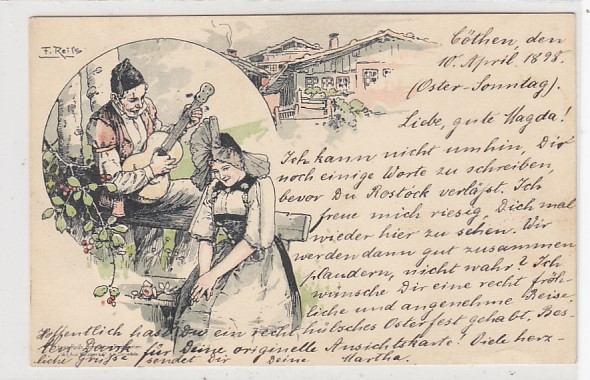 F. Reiss
Cöthen, den
10. April 1898.
(Oster-Sonntag).
Liebe, gute Magda!
Ich kann nicht umhin, Dir
noch einige Worte zu schreiben,
bevor Du Rostock verläßt. Ich
freue mich riesig, Dich mal
wieder hier zu sehen. Wir
werden dann gut zusammen
plaudern, nicht wahr? Ich
wünsche Dir eine recht fröh-
liche und angenehme Reise.
Hoffentlich hast Du ein recht hübsches Osterfest gehabt. Bes-
ten Dank für Deine originelle Ansichtskarte! Viele herz-
liche Grüsse sendet Dir Deine Martha.